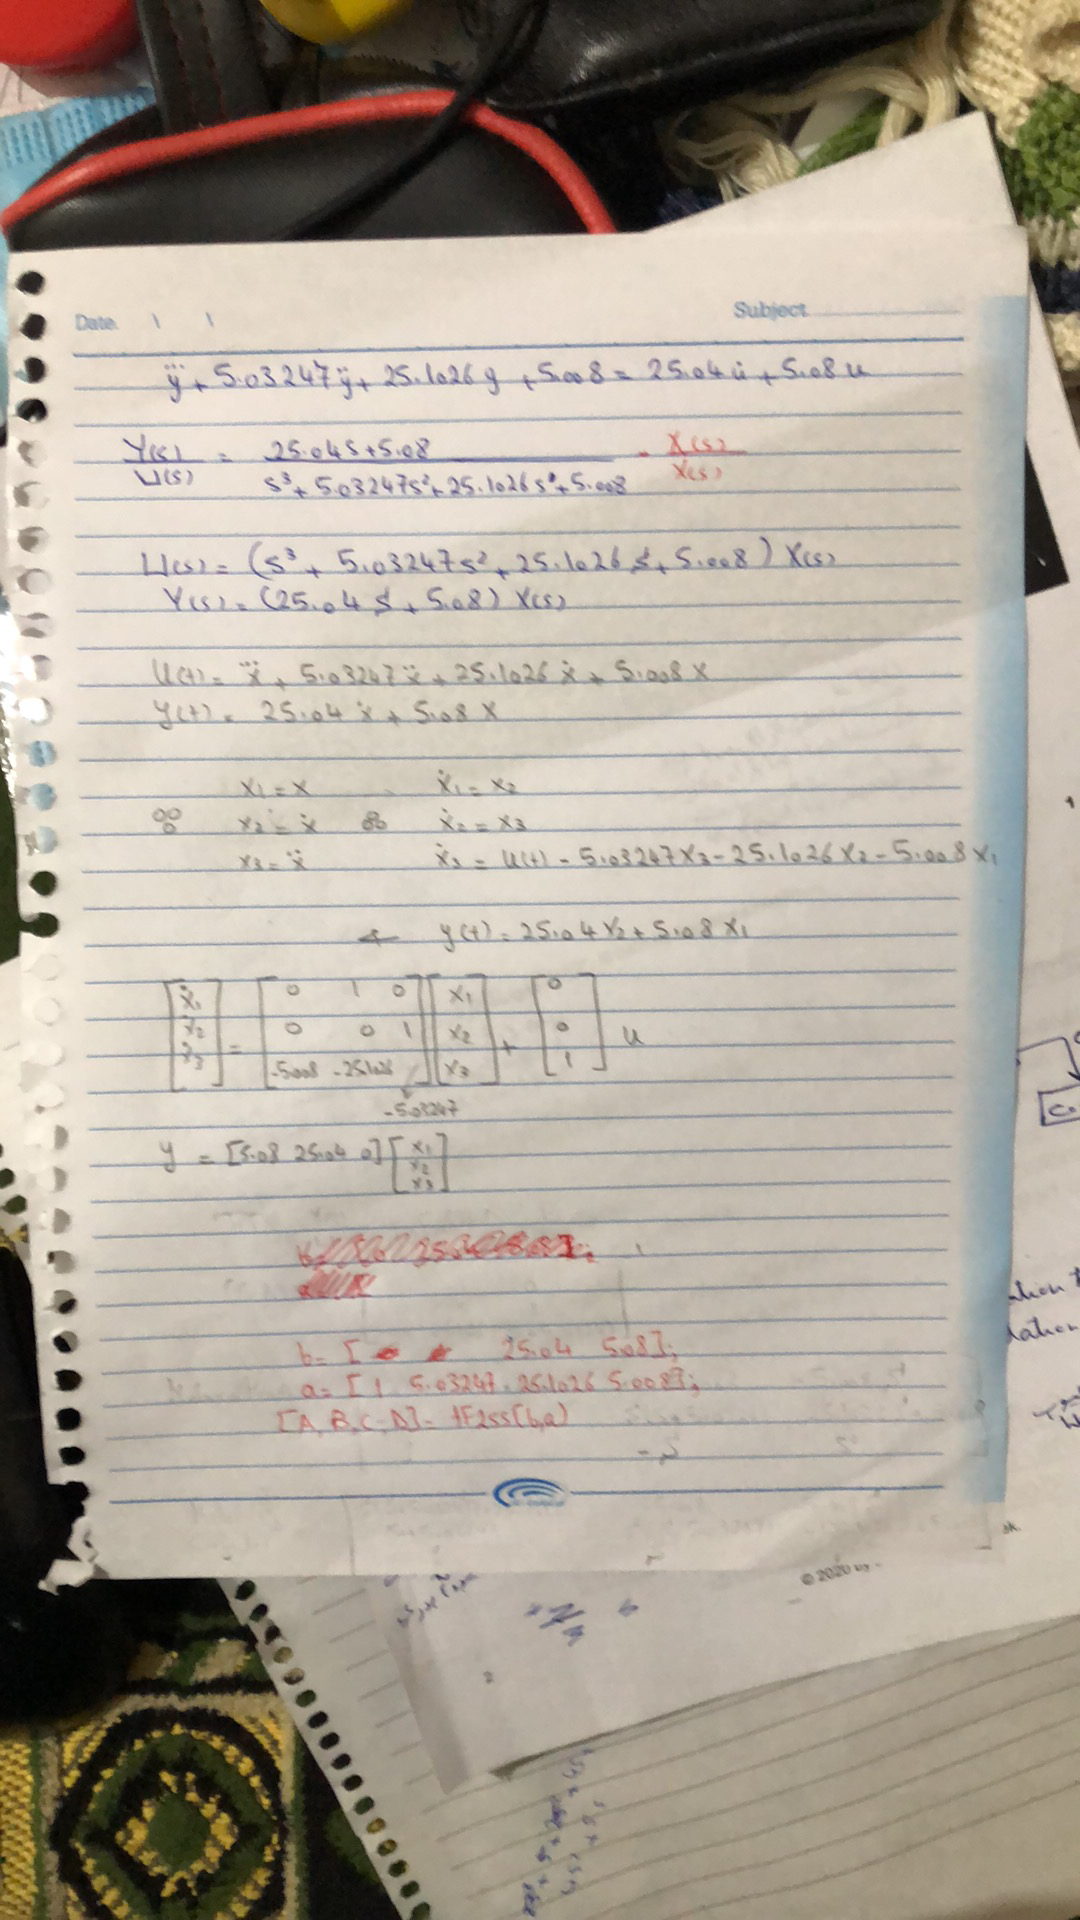 Date. \ \ Subject
y⃛ + 5.03247ÿ + 25.1026 y + 5.008 = 25.04 u̇ + 5.08 u
Y(s)/U(s) = (25.04s + 5.08)/(s³ + 5.03247s² + 25.1026s + 5.008) · X(s)/X(s)
U(s) = (s³ + 5.03247s² + 25.1026 s + 5.008) X(s)
Y(s) = (25.04 s + 5.08) X(s)
U(t) = x⃛ + 5.03247 ẍ + 25.1026 ẋ + 5.008 X
y(t) = 25.04 ẋ + 5.08 X
x₁ = x ẋ₁ = x₂
x₂ = ẋ ẋ₂ = x₃
x₃ = ẍ ẋ₃ = U(t) - 5.03247 X₃ - 25.1026 X₂ - 5.008 X₁
← y(t) = 25.04 X₂ + 5.08 X₁
[ẋ₁ [0 1 0] [x₁ [0
ẋ₂ = 0 0 1 x₂ + 0 u
ẋ₃] -5.008 -25.1026] x₃] 1]
-5.03247
y = [5.08 25.04 0] [x₁ x₂ x₃]
b = [ 25.04 5.08];
a = [1 5.03247 25.1026 5.008];
[A, B, C, D] = tf2ss(b,a)
© 2020
2